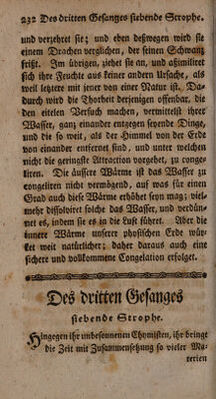 232 Des dritten Gesanges siebende Strophe.
und verzehret sie; und eben deßwegen wird sie
einem Drachen verglichen, der seinen Schwanz
frißt. Im übrigen, ziehet sie an, und aßimiliret
sich ihre Feuchte aus keiner andern Ursache, als
weil letztere mit jener von einer Natur ist. Da-
durch wird die Thorheit derjenigen offenbar, die
den eitelen Versuch machen, vermittelst ihrer
Wasser, ganz einander entgegen seyende Dinge,
und die so weit, als der Himmel von der Erde
von einander entfernet sind, und unter welchen
nicht die geringste Attraction vorgehet, zu conge-
liren. Die äussere Wärme ist das Wasser zu
congeliren nicht vermögend, auf was für einen
Grad auch diese Wärme erhöhet seyn mag; viel-
mehr dissolviret solche das Wasser, und verdün-
net es, indem sie es in die Luft führet. Aber die
innere Wärme unserer physischen Erde würk-
ket weit natürlicher; daher daraus auch eine
sichere und vollkommene Congelation erfolget.
Des dritten Gesanges
siebende Strophe.
Hingegen ihr unbesonnenen Chymisten, ihr bringet
die Zeit mit Zusammensetzung so vieler Ma-
terien